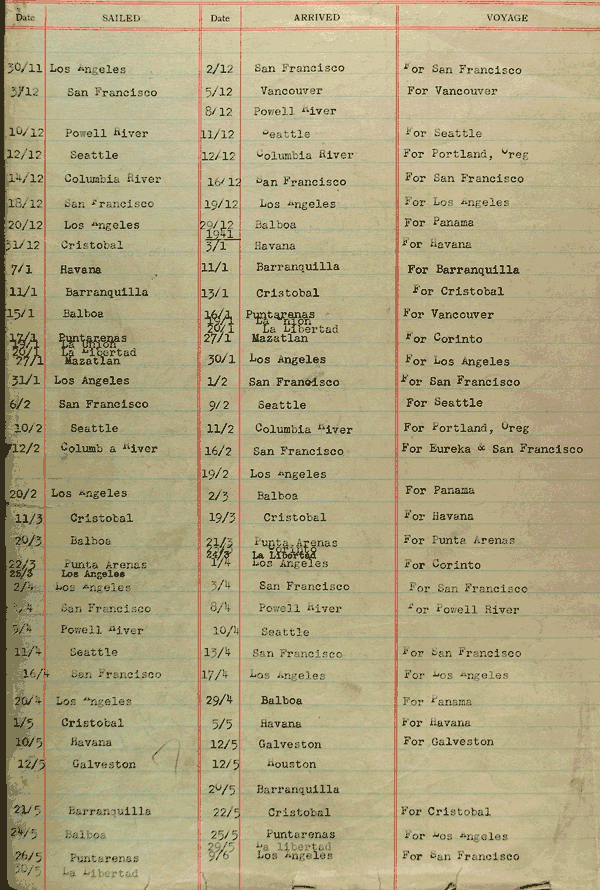 Date SAILED Date ARRIVED VOYAGE
30/11 Los Angeles 2/12 San Francisco For San Francisco
3/12 San Francisco 5/12 Vancouver For Vancouver
8/12 Powell River
10/12 Powell River 11/12 Seattle For Seattle
12/12 Seattle 12/12 Columbia River For Portland, Oreg
14/12 Columbia River 16/12 San Francisco For San Francisco
18/12 San Francisco 19/12 Los Angeles For Los Angeles
20/12 Los Angeles 29/12 Balboa For Panama
1941
31/12 Cristobal 3/1 Havana For Havana
7/1 Havana 11/1 Barranquilla For Barranquilla
11/1 Barranquilla 13/1 Cristobal For Cristobal
15/1 Balboa 16/1 Puntarenas For Vancouver
19/1 La Union
20/1 La Libertad
17/1 Puntarenas 27/1 Mazatlan For Corinto
19/1 La Union
20/1 La Libertad
27/1 Mazatlan 30/1 Los Angeles For Los Angeles
31/1 Los Angeles 1/2 San Francisco For San Francisco
6/2 San Francisco 9/2 Seattle For Seattle
10/2 Seattle 11/2 Columbia River For Portland, Oreg
12/2 Columb a River 16/2 San Francisco For Eureka & San Francisco
19/2 Los Angeles
20/2 Los Angeles 2/3 Balboa For Panama
11/3 Cristobal 19/3 Cristobal For Havana
20/3 Balboa 21/3 Punta Arenas For Punta Arenas
Corinto
24/3 La Libertad
22/3 Punta Arenas 1/4 Los Angeles For Corinto
25/3 Los Angeles
2/4 Los Angeles 3/4 San Francisco For San Francisco
/4 San Francisco 8/4 Powell River For Powell River
9/4 Powell River 10/4 Seattle
11/4 Seattle 13/4 San Francisco For San Francisco
16/4 San Francisco 17/4 Los Angeles For Los Angeles
20/4 Los Angeles 29/4 Balboa For Panama
1/5 Cristobal 5/5 Havana For Havana
10/5 Havana 12/5 Galveston For Galveston
12/5 Galveston 12/5 Houston
20/5 Barranquilla
21/5 Barranquilla 22/5 Cristobal For Cristobal
24/5 Balboa 25/5 Puntarenas For Los Angeles
29/5 La libertad
26/5 Puntarenas 9/6 Los Angeles For San Francisco
30/5 La Libertad